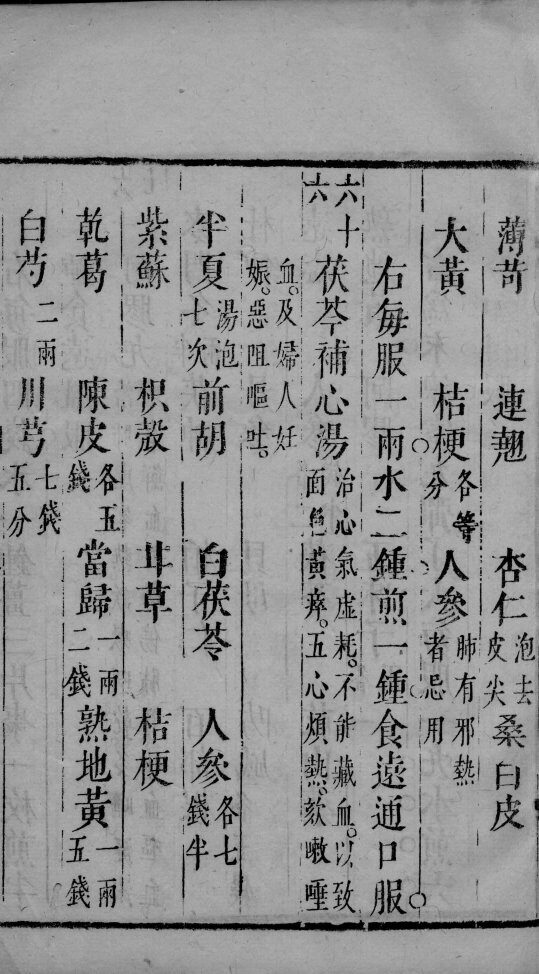 薄苛　連翹　杏仁泡去皮尖桑白皮
大黃　桔梗各等分人參肺有邪熱者忌用
右每服一兩水二鍾煎一鍾食遠通口服
六十六　茯苓補心湯治心氣虛耗不能藏血以致面色黃瘁五心煩熱欬嗽唾
血及婦人妊娠惡阻嘔吐
半夏湯泡七次前胡　白茯苓　人參各七錢半
紫蘇　枳殼　甘草　桔梗
乾葛　陳皮各五錢當歸一兩二錢熟地黃一兩五錢
白芍二兩川芎七錢五分